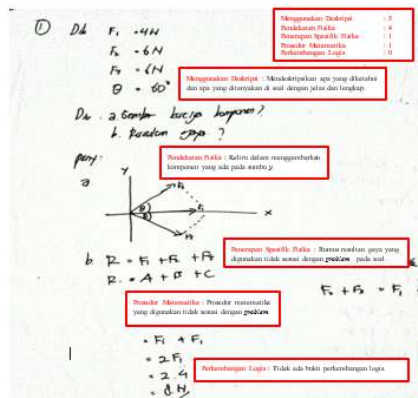 Menggunakan Deskripsi : 3
Pendekatan Fisika : 4
Penerapan Spesifik Fisika : 1
Prosedur Matematika : 1
Perkembangan Logis : 0
① Dik F₁ = 4N
F₂ = 6N
F₃ = 6N
θ = 60°
Menggunakan Deskripsi : Mendeskripsikan apa yang diketahui
dan apa yang ditanyakan di soal dengan jelas dan lengkap.
Dit. a. Gambar komponen?
b. Resultan gaya ?
Peny:
Pendekatan Fisika : Keliru dalam menggambarkan
komponen yang ada pada sumbu y.
a
Y
F₁
X
b. R = F₁ + F₂ + F₃
R = A + B + C
Penerapan Spesifik Fisika : Rumus resultan gaya yang
digunakan tidak sesuai dengan problem pada soal.
F₂ + F₃ = F₁
Prosedur Matematika : Prosedur matematika
yang digunakan tidak sesuai dengan problem
= F₁ + F₁
= 2F₁
= 2.4
= 8 N
Perkembangan Logis : Tidak ada bukti perkembangan logis